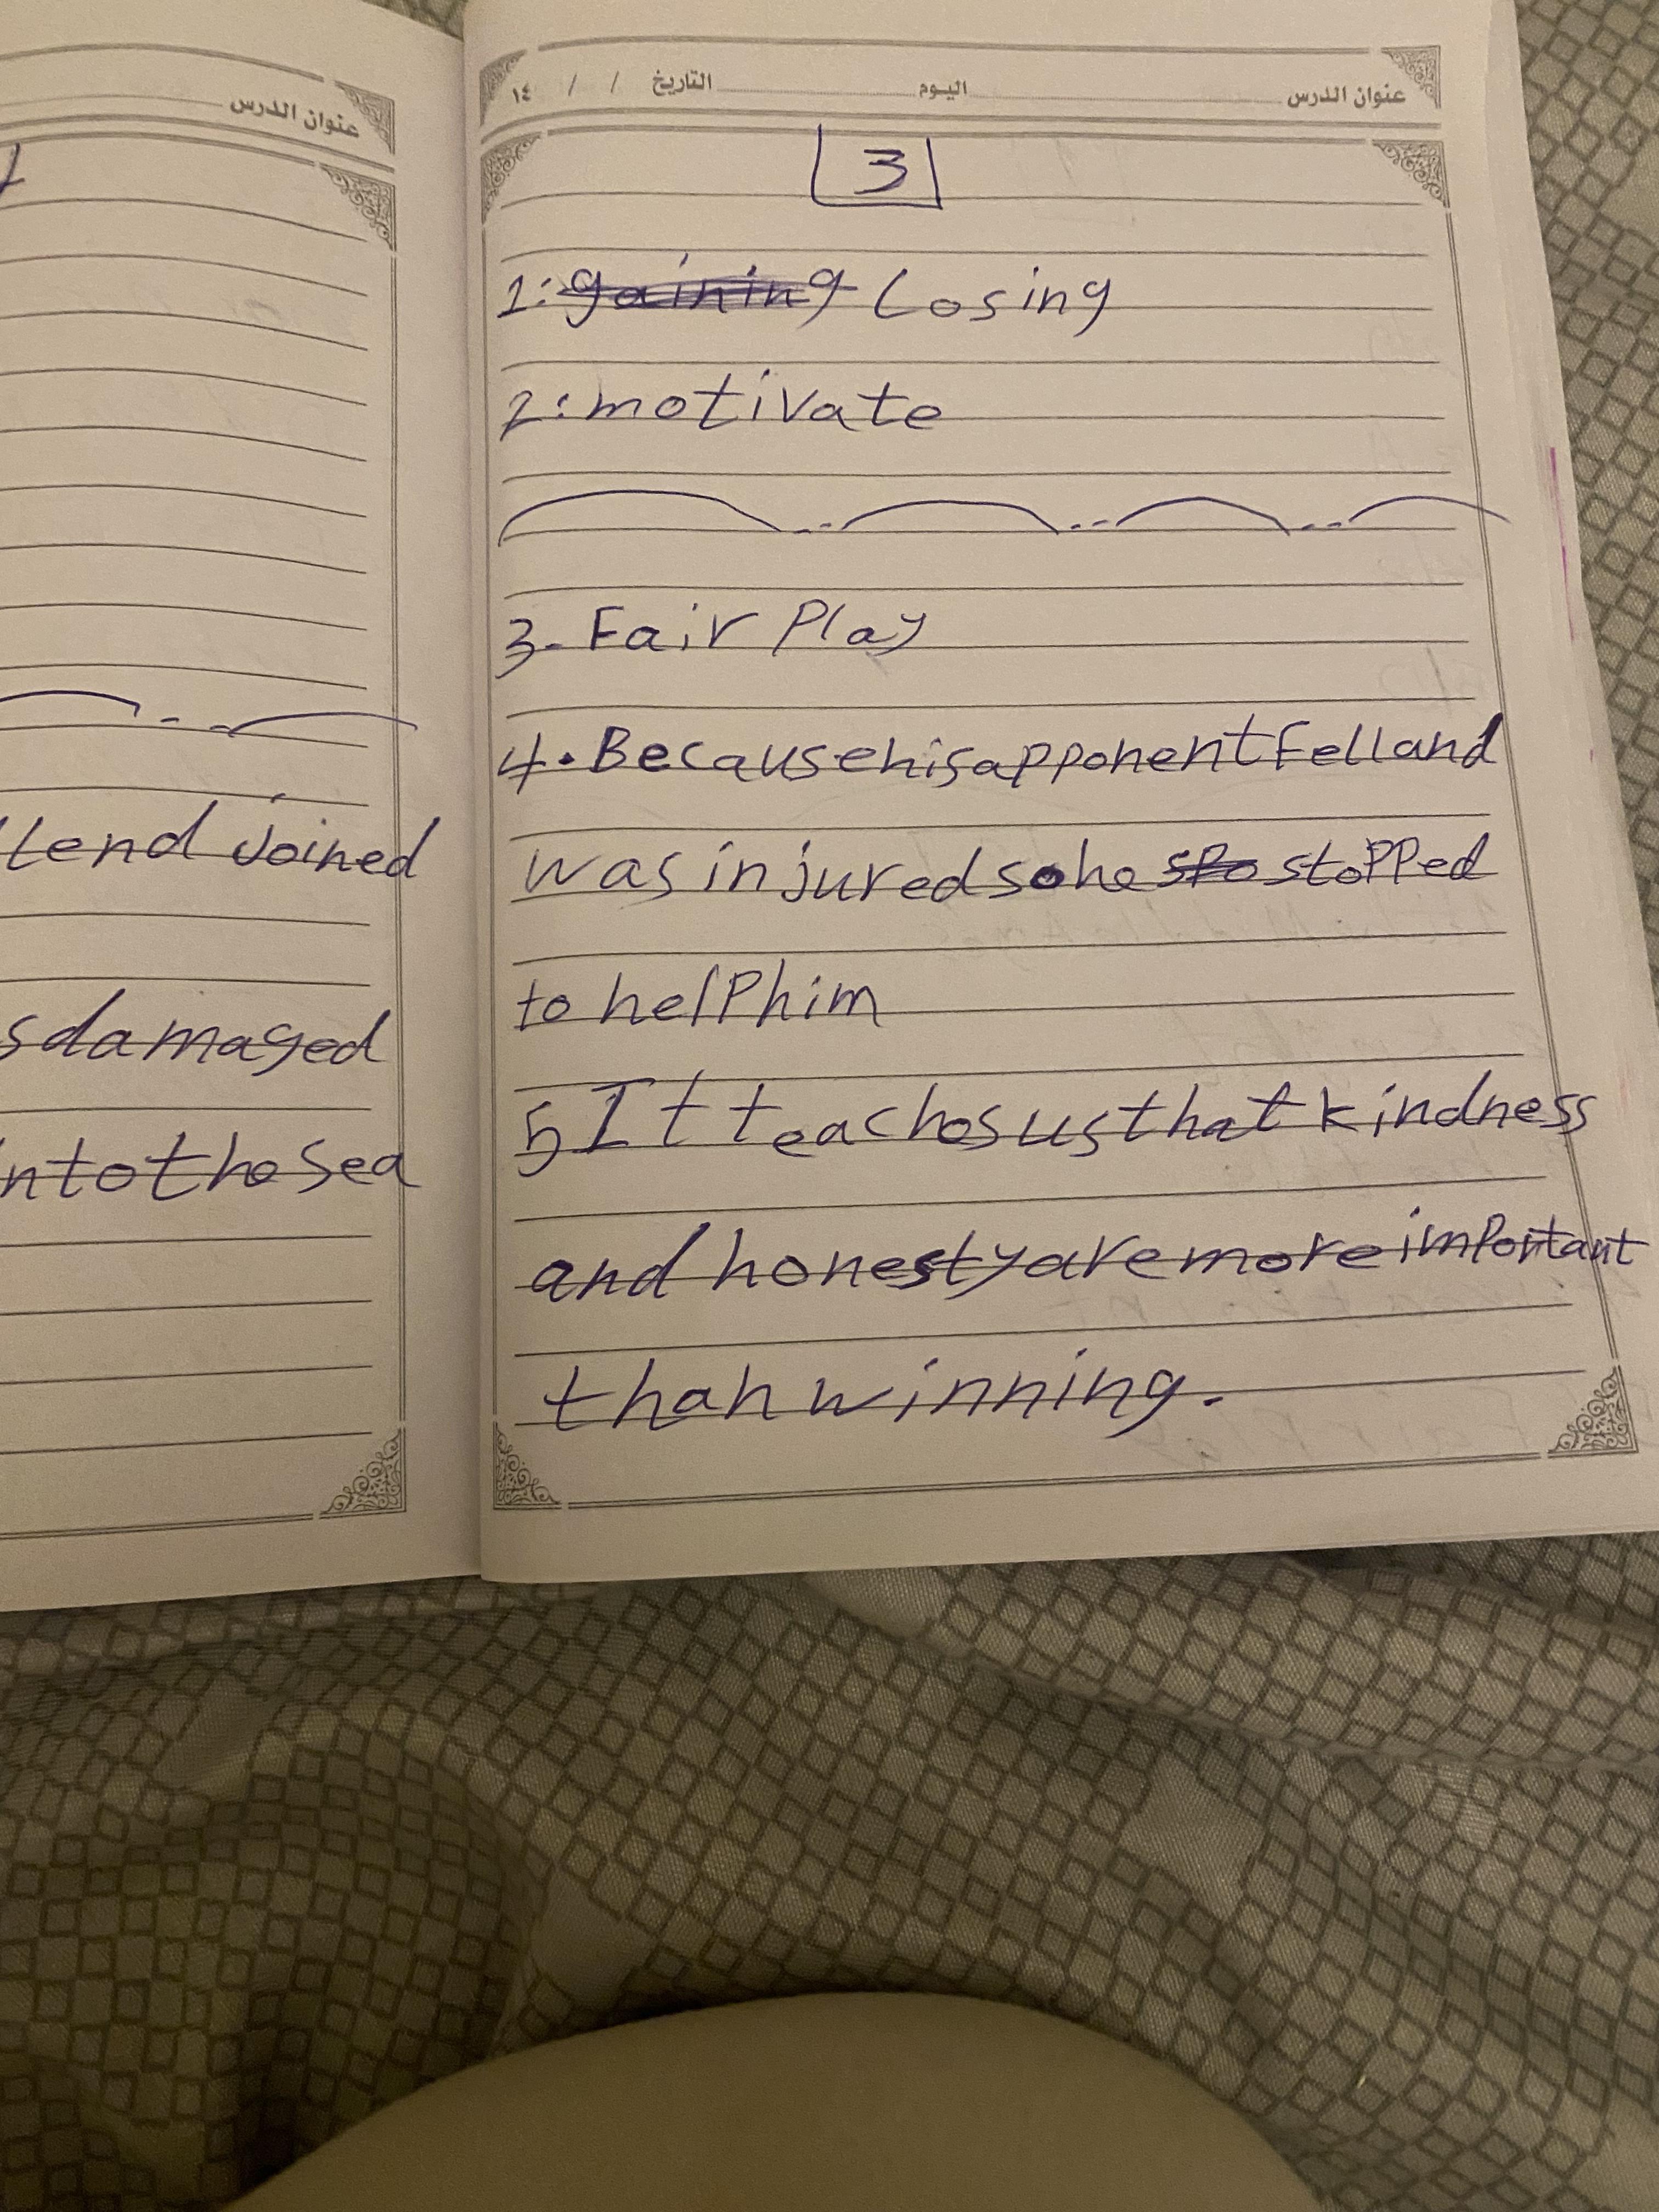 عنوان الدرس
lend joined
s damaged
into the sea
عنوان الدرس اليوم التاريخ / / ١٤
3
1: gaining Losing
2: motivate
3- Fair Play
4. Because his apponent Fell and
was injured so he spo stopped
to help him
5 It teaches us that kindness
and honesty are more important
than winning.